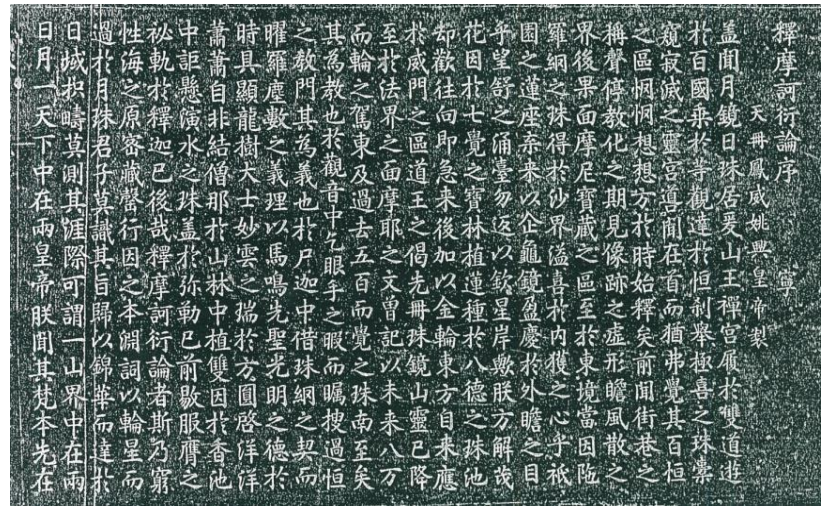 釋摩訶衍論序 寧
天冊鳳威姚興皇帝製
蓋聞月鏡日珠居爰山王禪宮履於雙道遊
於百國乘於苦觀達於恒刹舉極喜之珠藁
窺寂滅之靈宮尋聞在首而猶弗覺其百恒
之區惘惘想想方於時始釋矣前聞街巷之
稱聲停教化之期見像跡之虛形瞻風散之
界後果面摩尼寶藏之區至於東境當因陁
羅網之珠得於沙界溢喜於內獲之心乎祇
園之蓮座奈來以企龜鏡盈慶於外瞻之目
乎望舒之涌臺勿返以欽星岸歟朕方解茂
花因於七覺之寶林植蓮種於八德之珠池
却歡往向即急来後加以金輪東方自来應
於威門之區道王之偈先冊珠鏡山靈已降
至於法界之面摩耶之文曾記以未来八万
而輪之駕東及過去五百而覺之珠南至矣
其為教也於觀音中乞眼手之暇而矚搜過恒
之教門其為義也於尸迦中借珠網之契而
曜羅塵數之義理以馬鳴先聖光明之德於
時具顯龍樹大士妙雲之瑞於方圓啓洋洋
蕭蕭自非結僧那於山林中植雙因於香池
中詎懸演水之珠蓋於弥勒已前敭服膺之
祕軌於釋迦已後哉釋摩訶衍論者斯乃窮
性海之原密藏罄行因之本淵詞以輪星而
過於月珠君子莫識其旨歸以錦華而達於
日域抧疇莫測其涯際可謂一山界中在兩
日月一天下中在兩皇帝朕聞其梵本先在